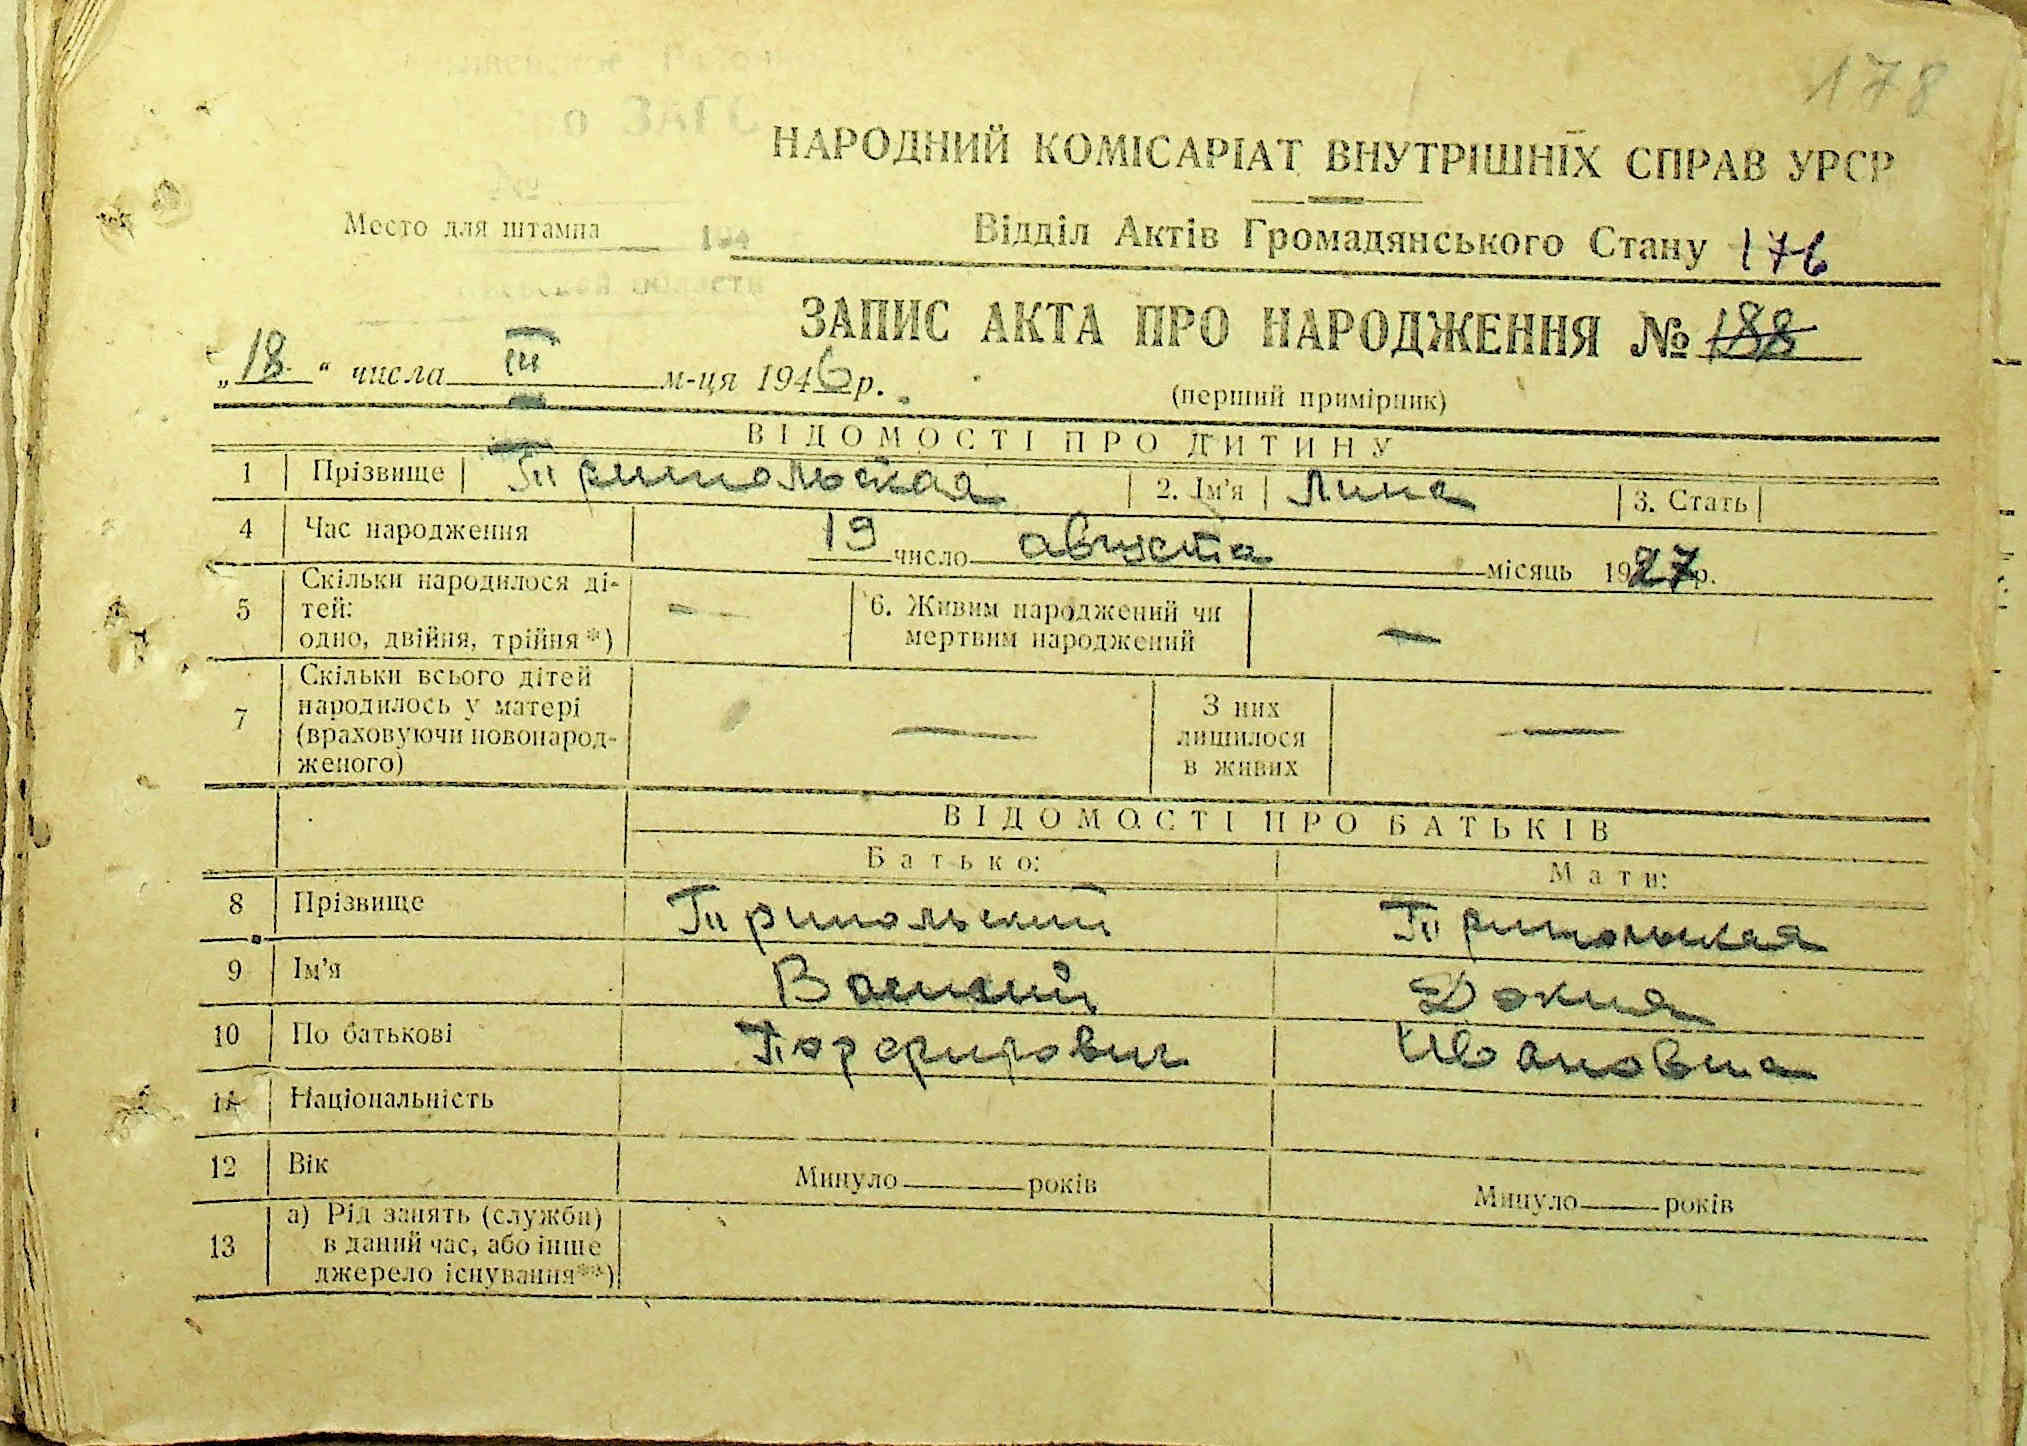 178
о ЗАГС
НАРОДНИЙ КОМІСАРІАТ ВНУТРІШНІХ СПРАВ УРСР
Место для штампа 194
Відділ Актів Громадянського Стану 176
области
ЗАПИС АКТА ПРО НАРОДЖЕННЯ № 188
„18“ числа III м-ця 1946 р.
(перший примірник)
ВІДОМОСТІ ПРО ДИТИНУ
1 Прізвище Трипольская 2. Ім'я Лина 3. Стать
4 Час народження 19 число августа місяць 1927 р.
5 Скільки народилося ді-
тей:
одно, двійня, трійня *) —
6. Живим народжений чи
мертвим народжений —
7 Скільки всього дітей
народилось у матері
(враховуючи новонарод-
женого) —
З них
лишилося
в живих —
ВІДОМОСТІ ПРО БАТЬКІВ
Батько: Мати:
8 Прізвище Трипольский Трипольская
9 Ім'я Василий Докия
10 По батькові Порфирович Ивановна
11 Національність
12 Вік Минуло рокiв Минуло років
13 а) Рід занять (служби)
в даний час, або інше
джерело існування**)